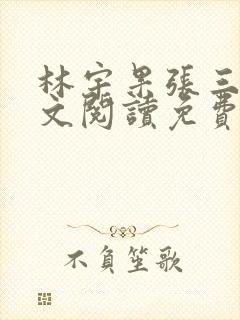 林宇杲張三
文閱讀免費
不負笙歌